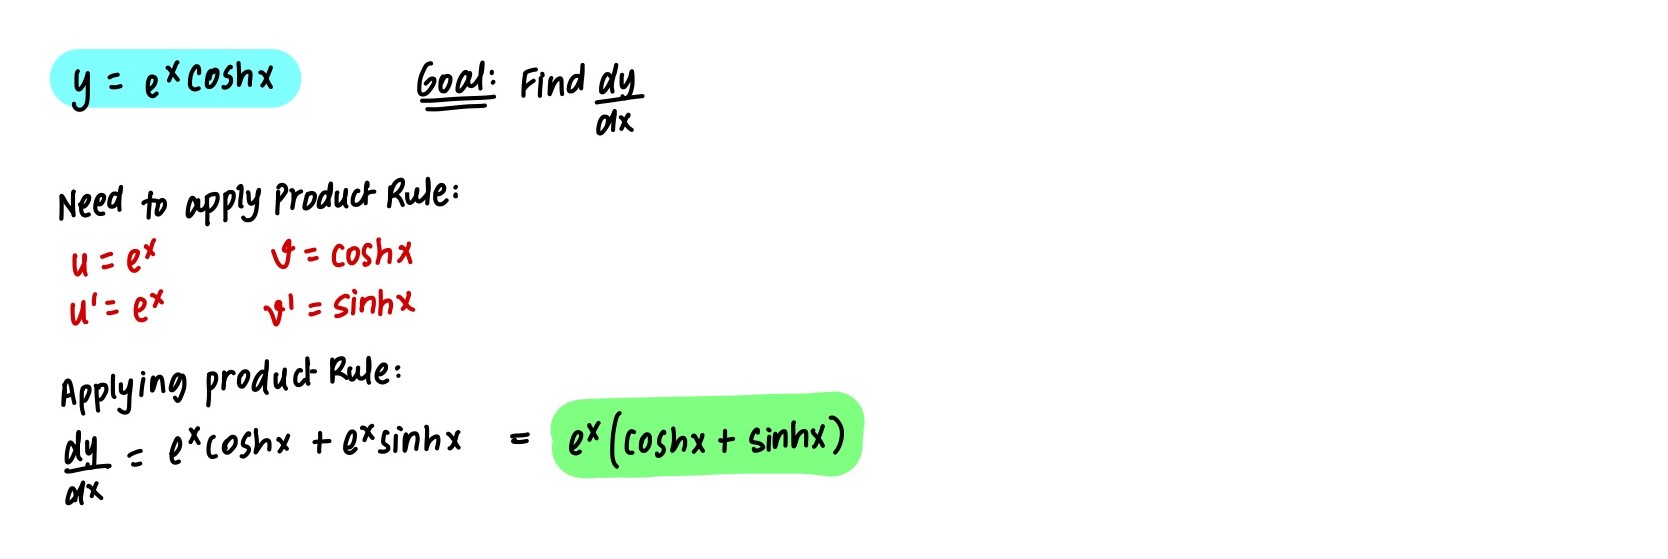 y = eˣ coshx    Goal: Find dy/dx
Need to apply Product Rule:
u = eˣ    v = coshx
u' = eˣ    v' = sinhx
Applying product Rule:
dy/dx = eˣ coshx + eˣ sinhx = eˣ (coshx + sinhx)